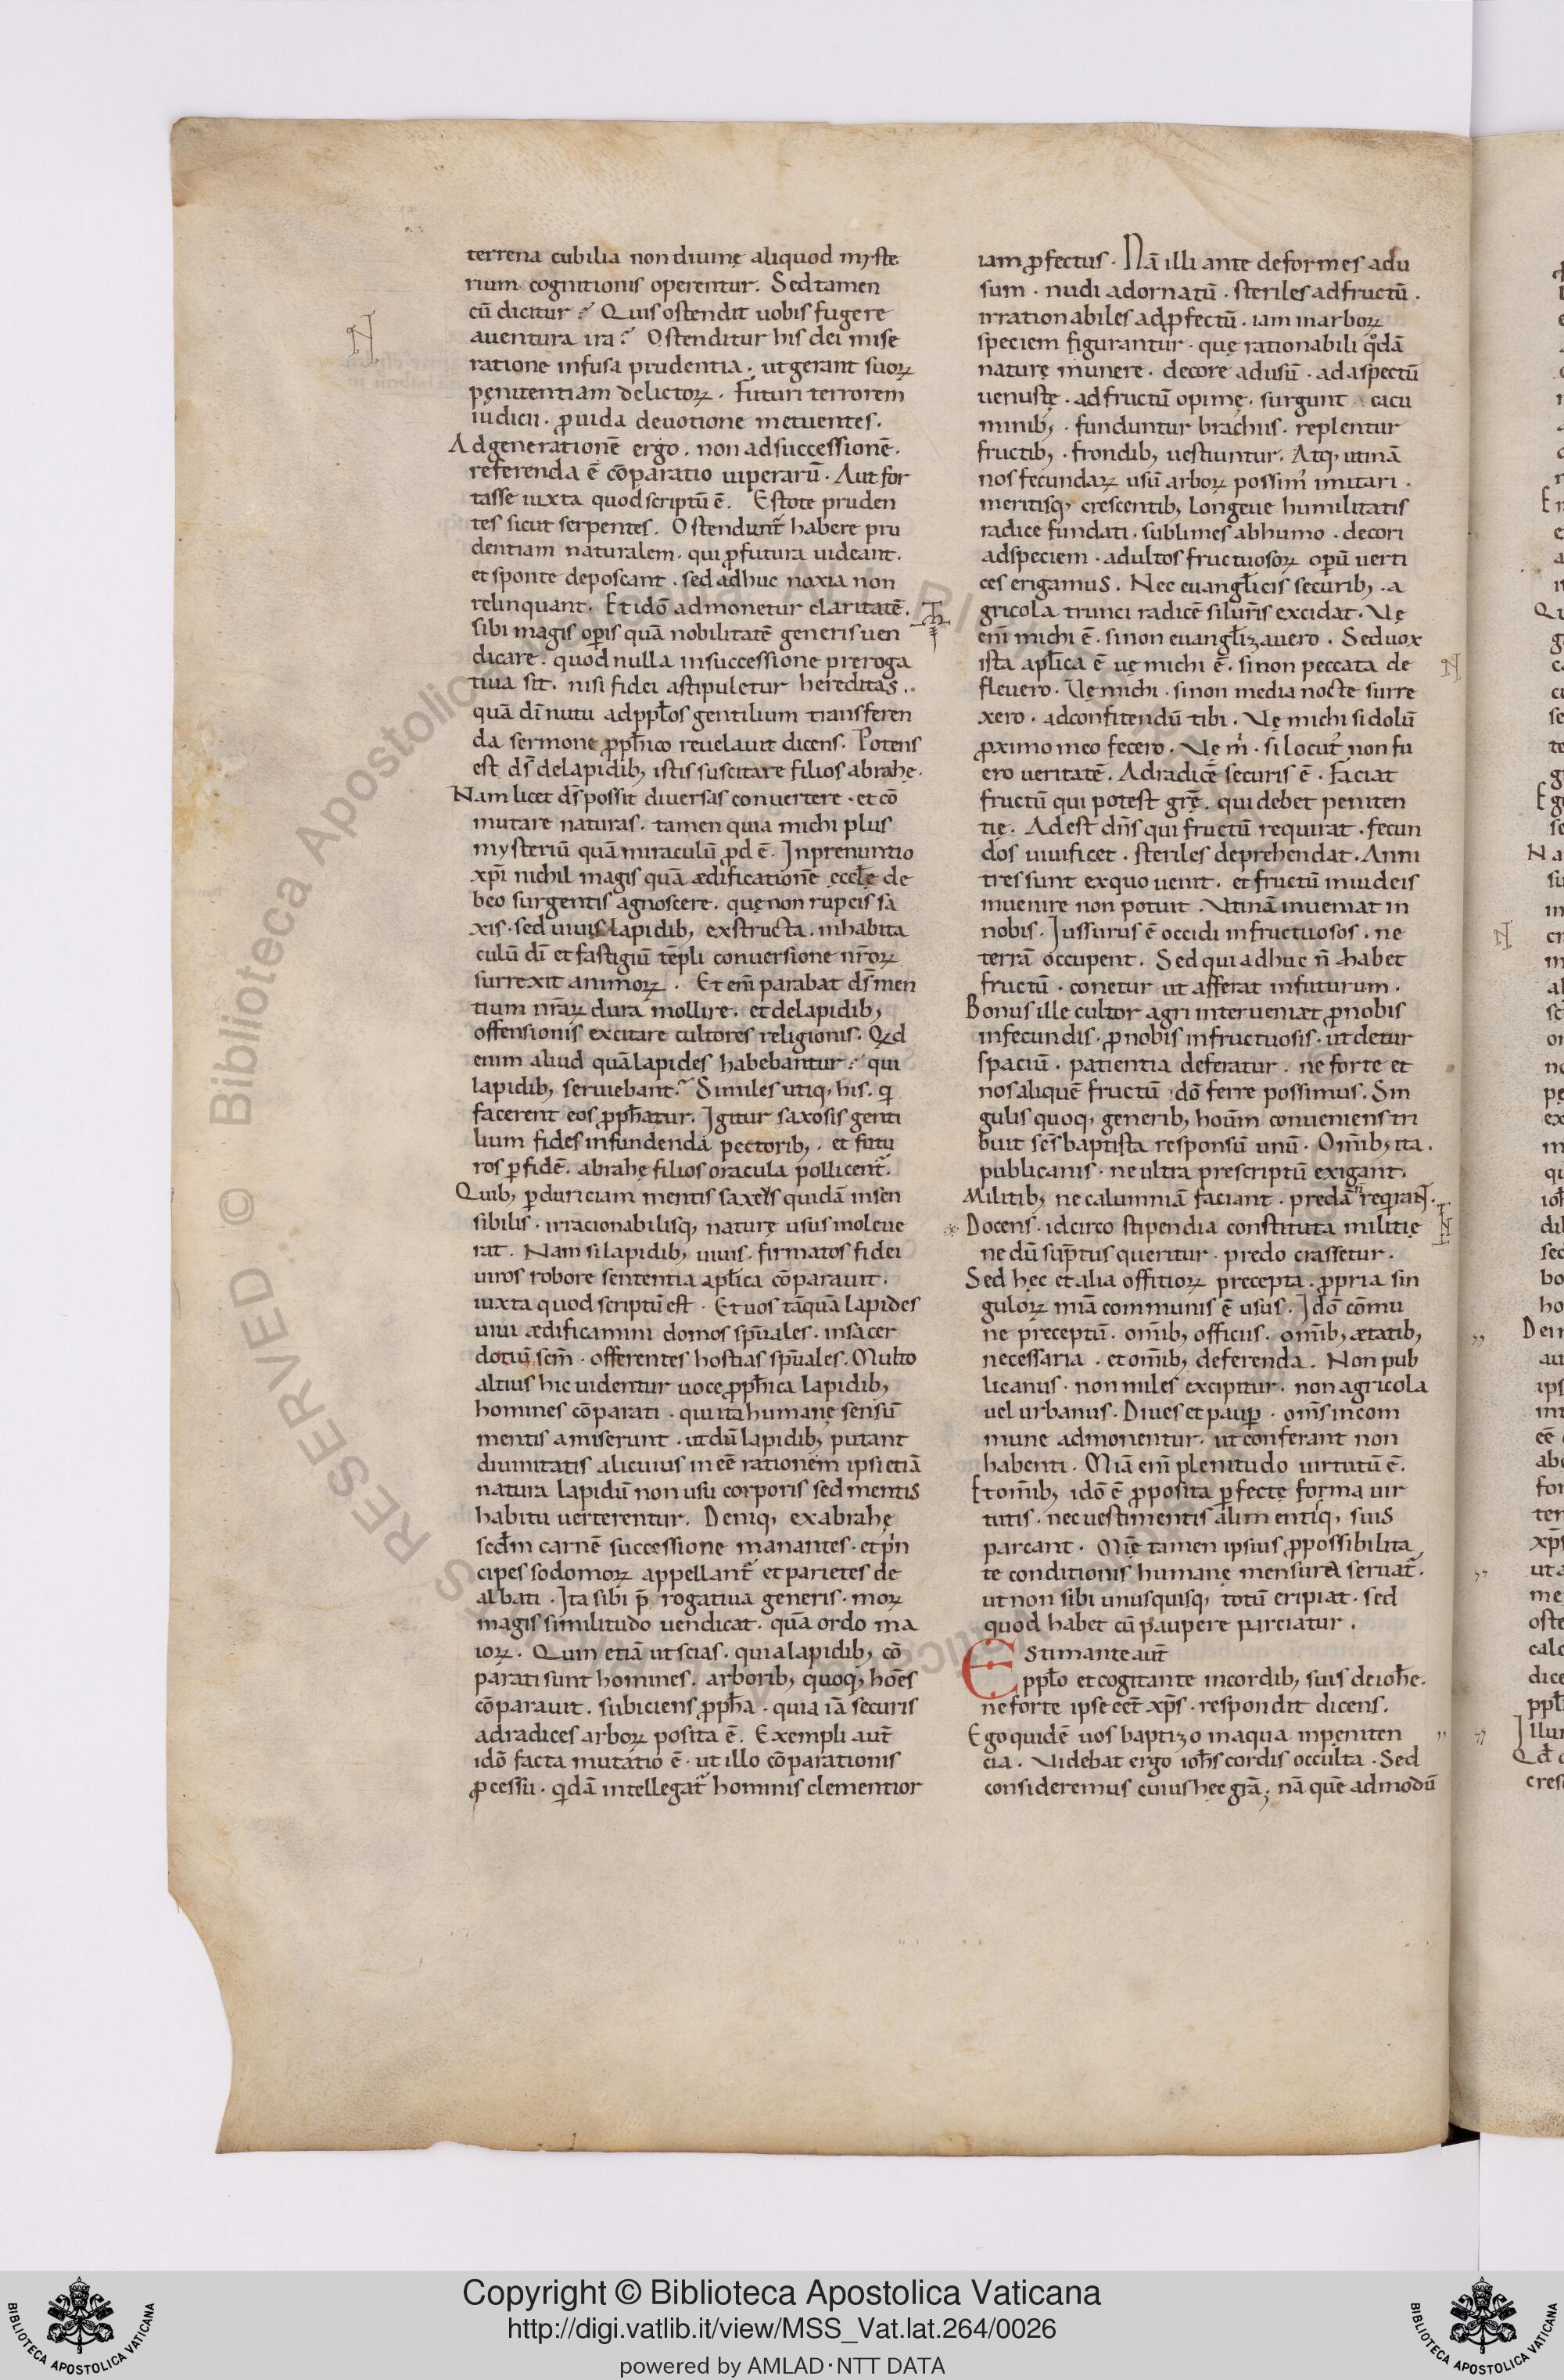 terrena cubilia non diuinę aliquod myste
rium cognitionis operentur. Sed tamen
cū dicitur. Quis ostendit uobis fugere
a uentura ira? Ostenditur his dei mise
ratione infusa prudentia. ut gerant suoꝝ
pęnitentiam delictoꝝ. Futuri terrorem
iudicii. ꝓuida deuotione metuentes.
Ad generationē ergo. non ad successionē.
referenda ē cōparatio uiperarū. Aut for
tasse iuxta quod scriptū ē. Estote pruden
tes sicut serpentes. Ostendunt᷑ habere pru
dentiam naturalem. qui ꝓfutura uideant.
et sponte deposcant. sed adhuc noxia non
relinquant. Et idō admonetur claritatē.
sibi magis oꝑis quā nobilitatē generis uen
dicare. quod nulla in successione preroga
tiua sit. nisi fidei astipuletur hereditas.
quā dī nutu ad ppl̄os gentilium transferen
da sermone ꝓph̄ico reuelauit dicens. Potens
est ds̄ de lapidib; istis suscitare filios abrahę.
Nam licet ds̄ possit diuersas conuertere. et cō
mutare naturas. tamen quia michi plus
mysteriū quā miraculū ꝓd ē. In prenuntio
xp̄i nichil magis quā ædificationē ęccl̄ę de
beo surgentis agnoscere. quę non rupeis sa
xis. sed uiuis lapidib; exstructa. in habita
culū dī et fastigiū tēpli conuersione nr̄oꝝ
surrexit animoꝝ. Et enī parabat ds̄ men
tium nr̄aꝝ dura mollire. et de lapidib;
offensionis excitare cultores religionis. Qd
enim aliud quā lapides habebantur. qui
lapidib; seruiebant? Similes utiq; his. q
facerent eos ꝓph̄atur. Igitur saxosis genti
lium fides infundenda pectorib;. et futu
ros ꝑ fidē. abrahę filios oracula pollicent᷑.
Quib; ꝑ duriciam mentis saxeis quidā insen
sibilis. irracionabilisq; naturę usus inoleue
rat. Nam si lapidib; uiuis. firmatos fidei
uiros robore sententia apl̄ica cōparauit.
iuxta quod scriptū est. Et uos tāquā lapides
uiui ædificamini domos sp̄uales. in sacer
dotiū scm̄. offerentes hostias sp̄uales. Multo
altius hic uidentur uoce ꝓph̄ica lapidib;
homines cōparati. qui ita humanę sensū
mentis amiserunt. ut dū lapidib; putant
diuinitatis alicuius in eē rationem ipsi etiā
natura lapidū non usu corporis sed mentis
habitu uerterentur. Deniq; ex abrahę
scd̄m carnē successione manantes. et prin
cipes sodomoꝝ appellant᷑ et parietes de
albati. Ita sibi p̄rogatiua generis. moꝝ
magis similitudo uendicat. quā ordo ma
ioꝝ. Quin etiā ut scias. quia lapidib; cō
parati sunt homines. arborib; quoq; hōes
cōparauit. subiciens ꝓph̄a. quia iā securis
ad radices arboꝝ posita ē. Exempli aut̄
idō facta mutatio ē. ut illo cōparationis
ꝓcessu. qdā intellegat᷑ hominis clementior
iam ꝓfectus. Nā illi ante deformes ad u
sum. nudi ad ornatū. steriles ad fructū.
irrationabiles ad ꝓfectū. iam in arboꝝ
speciem figurantur. quę rationabili qdā
naturę munere. decore ad usū. ad aspectū
uenustę. ad fructū opimę. surgunt cacu
minib;. funduntur brachiis. replentur
fructib;. frondib; uestiuntur. Atq; utinā
nos fecundaꝝ usū arboꝝ possim᷒ imitari.
meritisq; crescentib; longeue humilitatis
radice fundati. sublimes ab humo. decori
ad speciem. adultos fructuosoꝝ oꝑū uerti
ces erigamus. Nec euangl̄icis securib;. a
gricola trunci radicē silur̄is excidat. Vę
enī michi ē. si non euangl̄izauero. Sed uox
ista apl̄ica ē uę michi ē. si non peccata de
fleuero. Vę michi. si non media nocte surre
xero. ad confitendū tibi. Vę michi si dolū
ꝓximo meo fecero. Vę m̄. si locut᷒ non fu
ero ueritatē. Ad radicē securis ē. Faciat
fructū qui potest grē. qui debet peniten
tię. Adest dn̄s qui fructū requirat. fecun
dos uiuificet. steriles deprehendat. Anni
tres sunt ex quo uenit. et fructū in iudeis
inuenire non potuit. Vtinā inueniat in
nobis. Iussurus ē occidi infructuosos. ne
terrā occupent. Sed qui adhuc n̄ habet
fructū. conetur ut afferat in futurum.
Bonus ille cultor agri interueniat ꝓ nobis
infecundis. ꝓ nobis infructuosis. ut detur
spaciū. patientia deferatur. ne forte et
nos aliquē fructū dō ferre possimus. Sin
gulis quoq; generib; houm̄ conueniens tri
buit scs̄ baptista responsū unū. Om̄ib; ita.
publicanis. ne ultra prescriptū exigant.
Militib; ne calumniā faciant. predā reqrant.
Docens. idcirco stipendia constituta militię
ne dū sūptus queritur. predo crassetur.
Sed hęc et alia offitioꝝ precepta. ꝓpria sin
guloꝝ mīa communis ē usus. Idō cōmu
ne preceptū. om̄ib; officiis. om̄ib; ætatib;
necessaria. et om̄ib; deferenda. Non pub
licanus. non miles excipitur. non agricola
uel urbanus. Diues et pauꝑ. om̄s in com
mune admonentur. ut conferant non
habenti. Mīa enī plenitudo uirtutū ē.
Et om̄ib; idō ē ꝓposita ꝑfectę forma uir
tutis. nec uestimentis alimentiq; suis
parcant. Mīę tamen ipsius ꝓ possibilita
te conditionis humanę mensura seruat᷑.
ut non sibi unusquisq; totū eripiat. sed
quod habet cū paupere parciatur.
Estimante aut̄
ppl̄o et cogitante in cordib; suis de ioh̄e.
ne forte ipse eēt xp̄s. respondit dicens.
Ego quidē uos baptizo in aqua in pęniten
cia. Videbat ergo ioh̄s cordis occulta. Sed
consideremus cuius hec grā; nā quē admodū
Copyright © Biblioteca Apostolica Vaticana
http://digi.vatlib.it/view/MSS_Vat.lat.264/0026
powered by AMLAD·NTT DATA